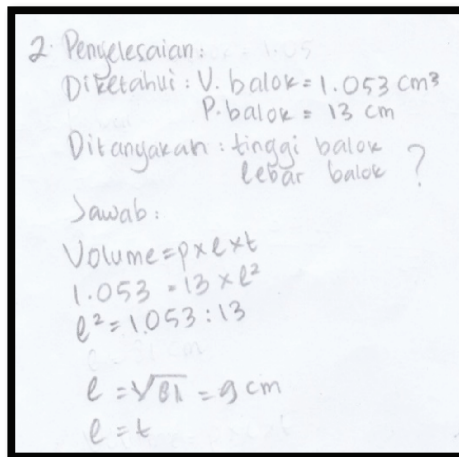 2. Penyelesaian:
Diketahui : V. balok = 1.053 cm³
P. balok = 13 cm
Ditanyakan : tinggi balok
lebar balok ?
Jawab :
Volume = p x l x t
1.053 = 13 x l²
l² = 1.053 : 13
l = √81 = 9 cm
l = t